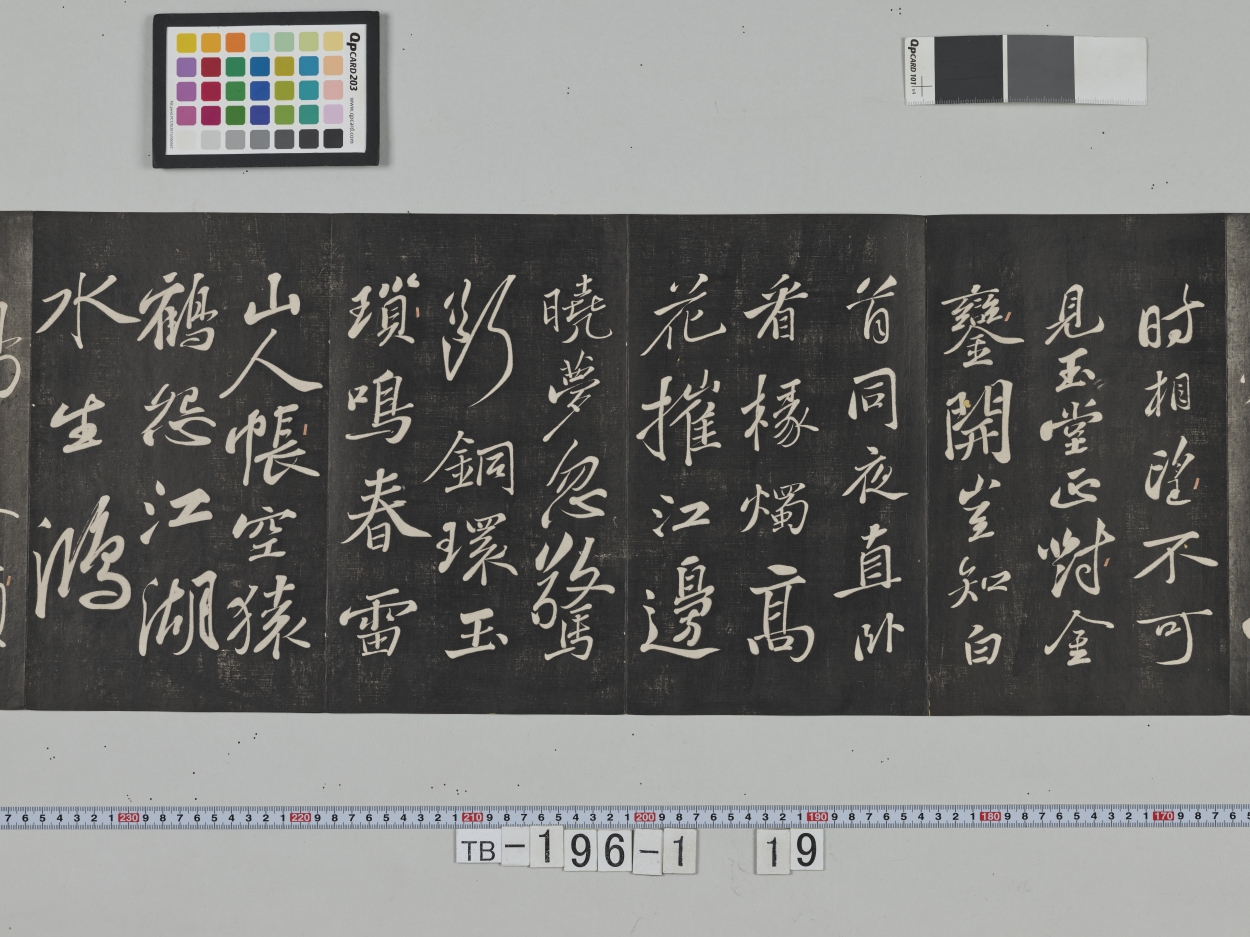 时相望不可
見玉堂正對金
鑾開豈知白
首同夜直卧
看椽燭髙
花摧江邊
曉夢忽驚
断銅環玉
瑣鳴春雷
山人帳空猿
鶴怨江湖
水生鴻
QpCARD 203 www.qpcard.com
QpCARD 101
TB-196-1 19